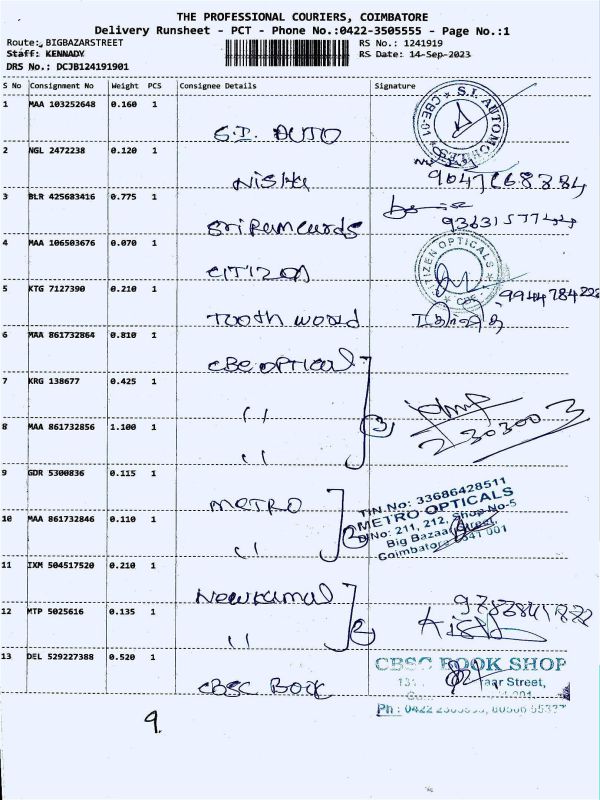 THE PROFESSIONAL COURIERS, COIMBATORE
Delivery Runsheet - PCT - Phone No.:0422-3505555 - Page No.:1
Route: BIGBAZARSTREET RS No.: 1241919
Staff: KENNADY RS Date: 14-Sep-2023
DRS No.: DCJB124191901
S No Consignment No Weight PCS Consignee Details Signature
1 MAA 103252648 0.160 1
S.I. AUTO
2 NGL 2472238 0.120 1
Nisha
3 BLR 425683416 0.775 1
4 MAA 106503676 0.070 1
CITIZEN
CITIZEN OPTICALS
CBE
5 KTG 7127390 0.210 1
Tooth world
6 MAA 861732864 0.810 1
CBE OPTICAL
7 KRG 138677 0.425 1
8 MAA 861732856 1.100 1
3
9 GDR 5300836 0.115 1
METRO
TIN No: 33686428511
METRO OPTICALS
D.No: 211, 212, Shop No-5
Big Bazaar Street,
Coimbatore 641 001
10 MAA 861732846 0.110 1
2
11 IXM 504517520 0.210 1
New Kamal
12 MTP 5025616 0.135 1
2
13 DEL 529227388 0.520 1
CBSC BOOK
CBSC BOOK SHOP
aar Street,
Ph : 0422
9.